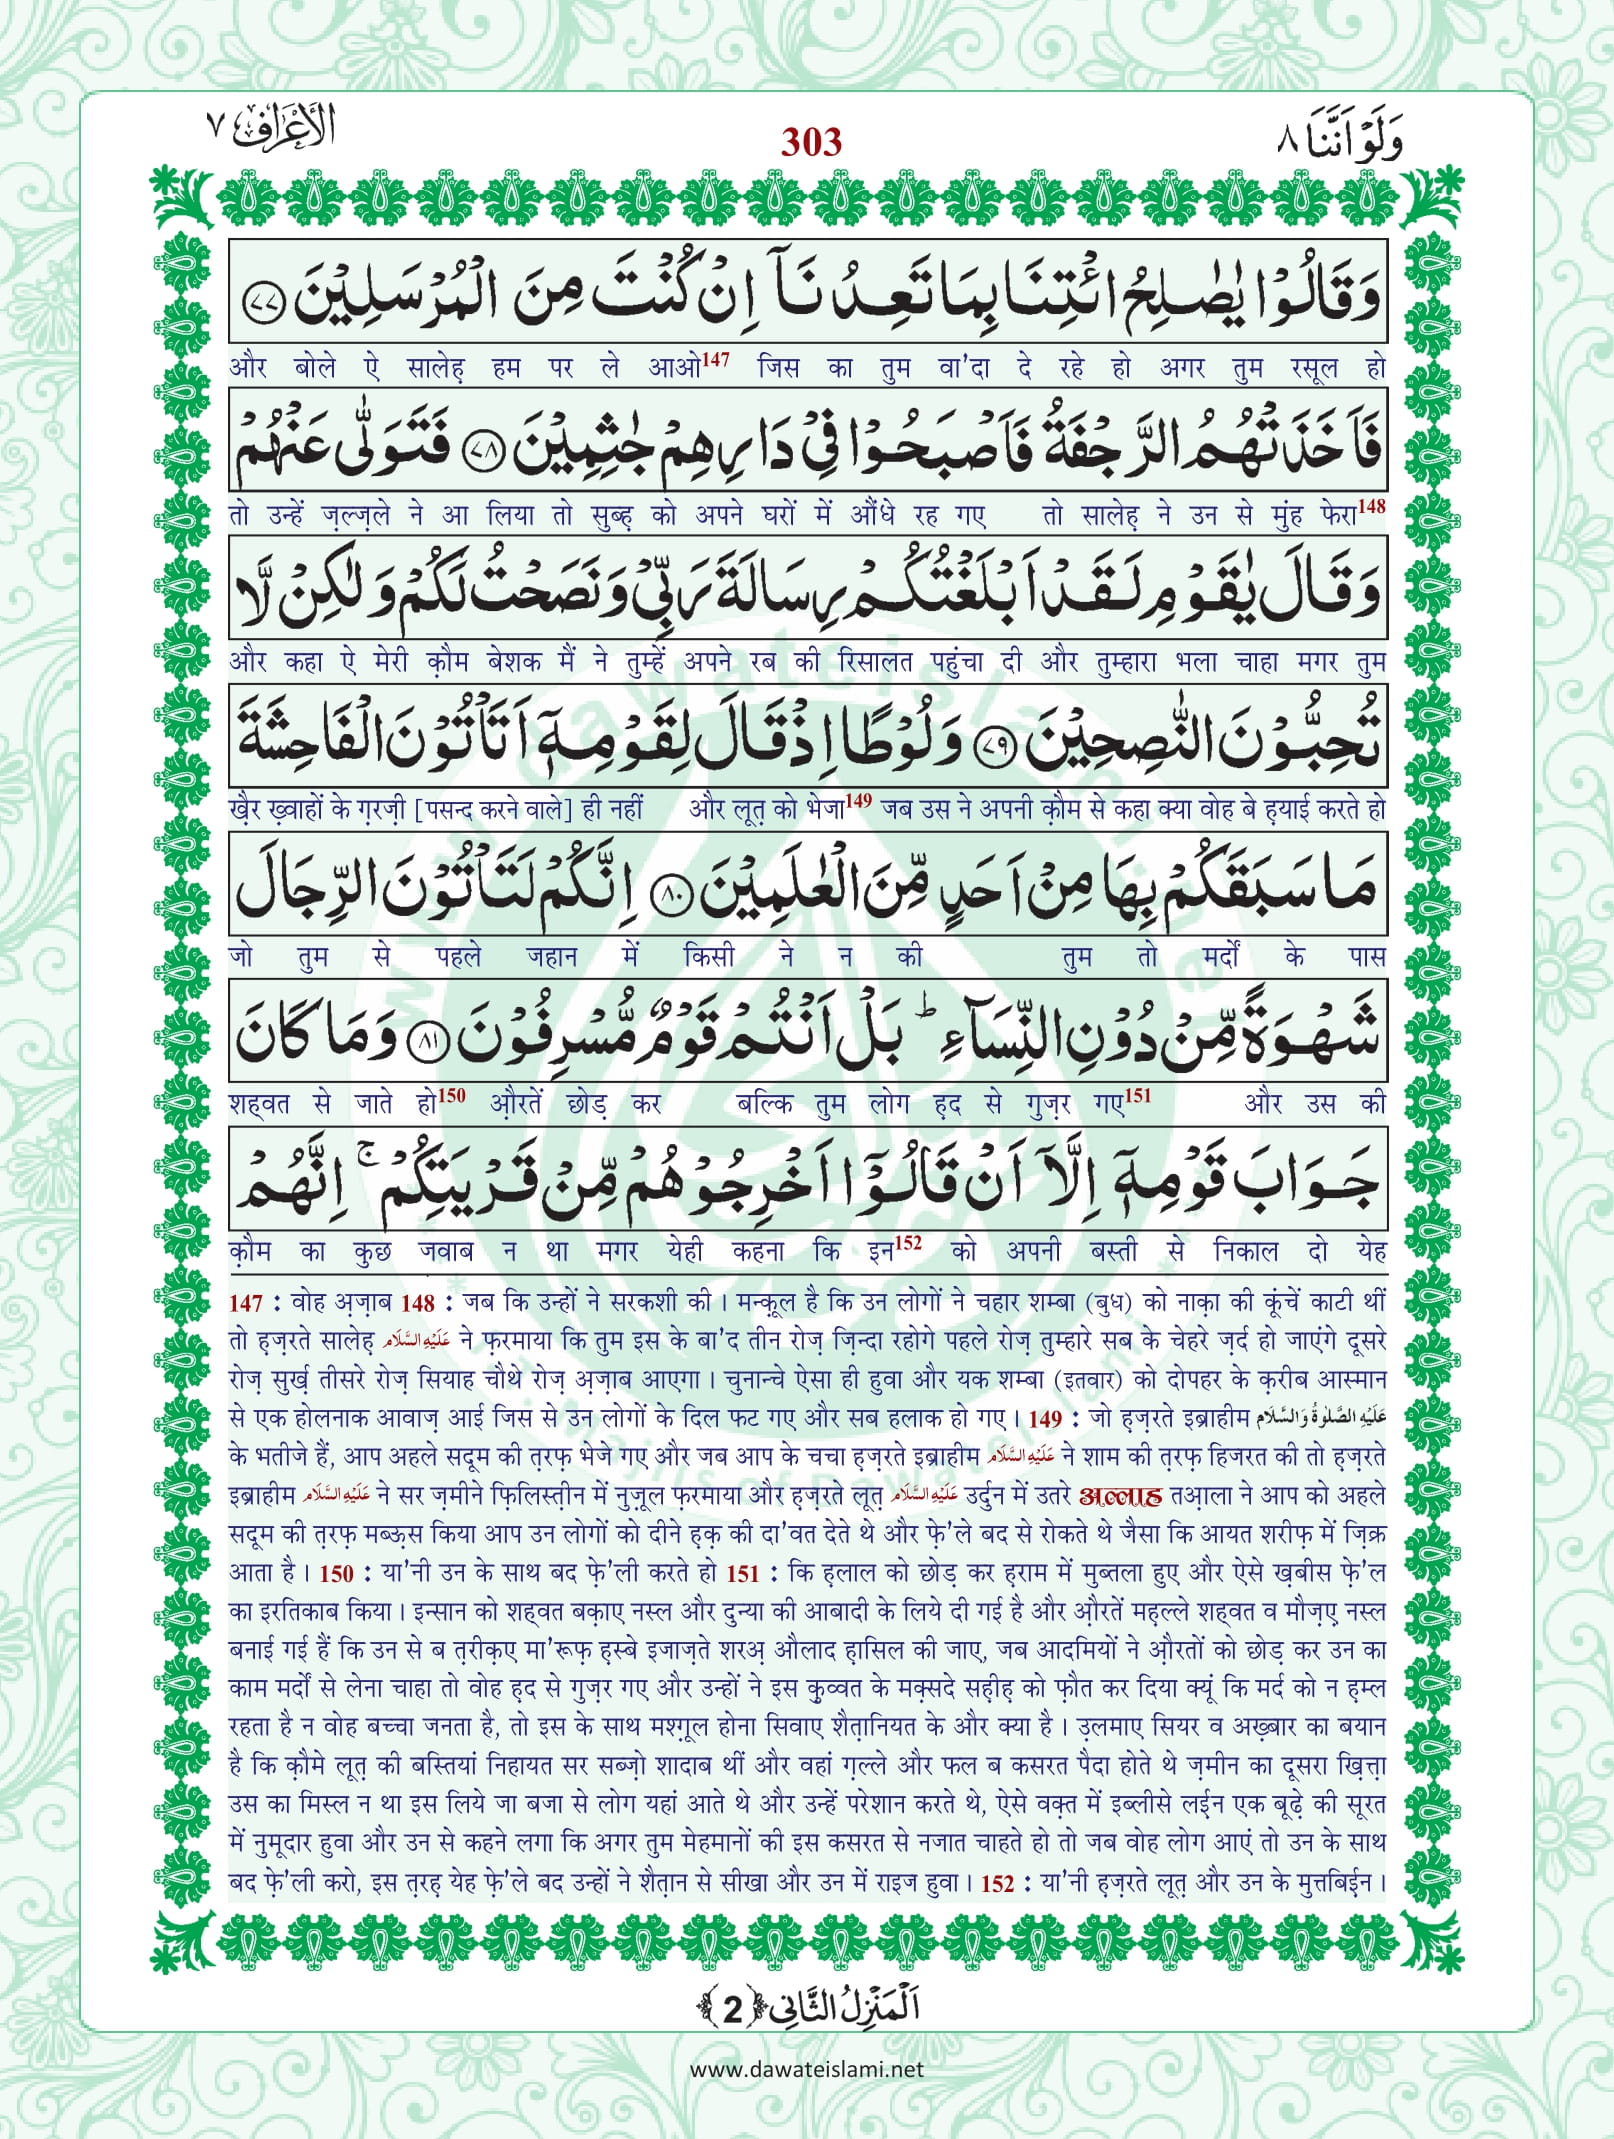 وَلَوْ اَنَّنَا ٨
303
الْاَعْرَاف ٧
وَقَالُوْا یٰصٰلِحُ ائْتِنَا بِمَا تَعِدُنَاۤ اِنْ كُنْتَ مِنَ الْمُرْسَلِیْنَ ﴿٧٧﴾
और बोले ऐ सालेह़ हम पर ले आओ147 जिस का तुम वा'दा दे रहे हो अगर तुम रसूल हो
فَاَخَذَتْهُمُ الرَّجْفَةُ فَاَصْبَحُوْا فِیْ دَارِهِمْ جٰثِمِیْنَ ﴿٧٨﴾ فَتَوَلّٰى عَنْهُمْ
तो उन्हें ज़ल्ज़ले ने आ लिया तो सुब्ह़ को अपने घरों में औंधे रह गए तो सालेह़ ने उन से मुंह फेरा148
وَقَالَ یٰقَوْمِ لَقَدْ اَبْلَغْتُكُمْ رِسَالَةَ رَبِّیْ وَنَصَحْتُ لَكُمْ وَلٰكِنْ لَّا
और कहा ऐ मेरी क़ौम बेशक मैं ने तुम्हें अपने रब की रिसालत पहुंचा दी और तुम्हारा भला चाहा मगर तुम
تُحِبُّوْنَ النّٰصِحِیْنَ ﴿٧٩﴾ وَلُوْطًا اِذْ قَالَ لِقَوْمِهٖۤ اَتَاْتُوْنَ الْفَاحِشَةَ
ख़ैर ख़्वाहों के ग़रज़ी [पसन्द करने वाले] ही नहीं और लूत़ को भेजा149 जब उस ने अपनी क़ौम से कहा क्या वोह बे ह़याई करते हो
مَا سَبَقَكُمْ بِهَا مِنْ اَحَدٍ مِّنَ الْعٰلَمِیْنَ ﴿٨٠﴾ اِنَّكُمْ لَتَاْتُوْنَ الرِّجَالَ
जो तुम से पहले जहान में किसी ने न की तुम तो मर्दों के पास
شَهْوَةً مِّنْ دُوْنِ النِّسَآءِ ؕ بَلْ اَنْتُمْ قَوْمٌ مُّسْرِفُوْنَ ﴿٨١﴾ وَمَا كَانَ
शह्वत से जाते हो150 औ़रतें छोड़ कर बल्कि तुम लोग ह़द से गुज़र गए151 और उस की
جَوَابَ قَوْمِهٖۤ اِلَّاۤ اَنْ قَالُوْۤا اَخْرِجُوْهُمْ مِّنْ قَرْیَتِكُمْ ۚ اِنَّهُمْ
क़ौम का कुछ जवाब न था मगर येही कहना कि इन152 को अपनी बस्ती से निकाल दो येह
147 : वोह अ़ज़ाब 148 : जब कि उन्हों ने सरकशी की । मन्क़ूल है कि उन लोगों ने चहार शम्बा (बुध) को नाक़ा की कूंचें काटी थीं
तो ह़ज़रते सालेह़ عَلَيْهِ السَّلَام ने फ़रमाया कि तुम इस के बा'द तीन रोज़ ज़िन्दा रहोगे पहले रोज़ तुम्हारे सब के चेहरे ज़र्द हो जाएंगे दूसरे
रोज़ सुर्ख़ तीसरे रोज़ सियाह चौथे रोज़ अ़ज़ाब आएगा । चुनान्चे ऐसा ही हुवा और यक शम्बा (इतवार) को दोपहर के क़रीब आस्मान
से एक होलनाक आवाज़ आई जिस से उन लोगों के दिल फट गए और सब हलाक हो गए । 149 : जो ह़ज़रते इब्राहीम عَلَيْهِ الصَّلٰوةُ وَالسَّلَام
के भतीजे हैं, आप अहले सदूम की त़रफ़ भेजे गए और जब आप के चचा ह़ज़रते इब्राहीम عَلَيْهِ السَّلَام ने शाम की त़रफ़ हिजरत की तो ह़ज़रते
इब्राहीम عَلَيْهِ السَّلَام ने सर ज़मीने फ़िलिस्त़ीन में नुज़ूल फ़रमाया और ह़ज़रते लूत़ عَلَيْهِ السَّلَام उर्दुन में उतरे अल्लाह तआ़ला ने आप को अहले
सदूम की त़रफ़ मब्ऊ़स किया आप उन लोगों को दीने ह़क़ की दा'वत देते थे और फ़े'ले बद से रोकते थे जैसा कि आयत शरीफ़ में ज़िक्र
आता है । 150 : या'नी उन के साथ बद फ़े'ली करते हो 151 : कि ह़लाल को छोड़ कर ह़राम में मुब्तला हुए और ऐसे ख़बीस फ़े'ल
का इरतिकाब किया । इन्सान को शह्वत बक़ाए नस्ल और दुन्या की आबादी के लिये दी गई है और औ़रतें मह़ल्ले शह्वत व मौज़ए़ नस्ल
बनाई गई हैं कि उन से ब त़रीक़ए मा'रूफ़ ह़स्बे इजाज़ते शरअ़ औलाद ह़ासिल की जाए, जब आदमियों ने औ़रतों को छोड़ कर उन का
काम मर्दों से लेना चाहा तो वोह ह़द से गुज़र गए और उन्हों ने इस क़ुव्वत के मक़्सदे सह़ीह़ को फ़ौत कर दिया क्यूं कि मर्द को न ह़म्ल
रहता है न वोह बच्चा जनता है, तो इस के साथ मश्ग़ूल होना सिवाए शैत़ानियत के और क्या है । उ़लमाए सियर व अख़्बार का बयान
है कि क़ौमे लूत़ की बस्तियां निहायत सर सब्ज़ो शादाब थीं और वहां ग़ल्ले और फल ब कसरत पैदा होते थे ज़मीन का दूसरा ख़ित़्त़ा
उस का मिस्ल न था इस लिये जा बजा से लोग यहां आते थे और उन्हें परेशान करते थे, ऐसे वक़्त में इब्लीसे लई़न एक बूढ़े की सूरत
में नुमूदार हुवा और उन से कहने लगा कि अगर तुम मेहमानों की इस कसरत से नजात चाहते हो तो जब वोह लोग आएं तो उन के साथ
बद फ़े'ली करो, इस त़रह़ येह फ़े'ले बद उन्हों ने शैत़ान से सीखा और उन में राइज हुवा । 152 : या'नी ह़ज़रते लूत़ और उन के मुत्तबिई़न ।
اَلْمَنْزِلُ الثَّانِی ﴿2﴾
www.dawateislami.net